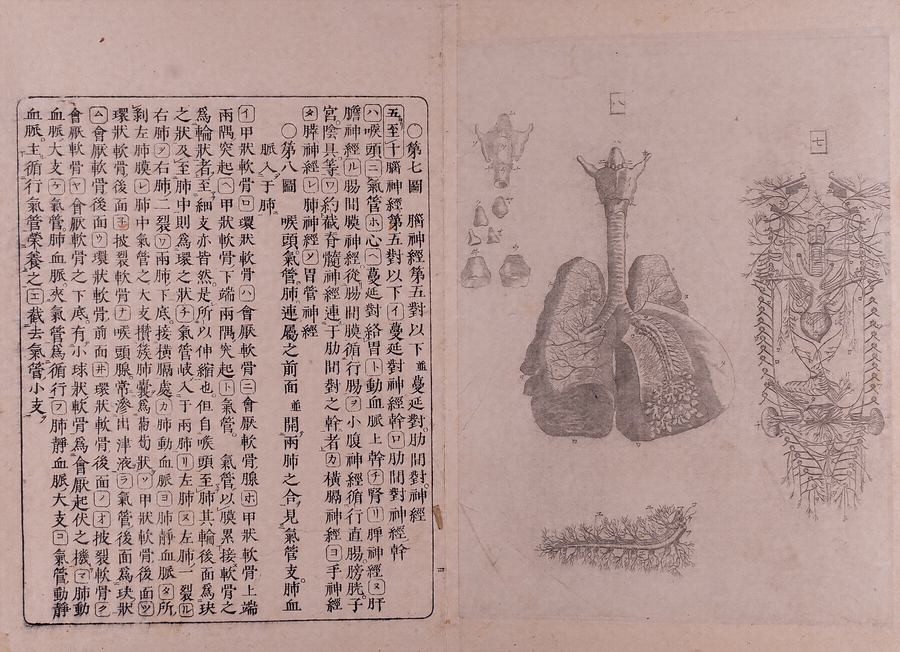 〇第七圖 腦神經第五對以下並蔓延對肋間對神經
五至十腦神經第五對以下イ蔓延對神經幹ロ肋間對神經幹
ハ喉頭ニ氣管ホ心ヘ蔓延對絡胃ト動血脈上幹チ腎リ脾神經ヌ肝
膽神經ル腸間膜神經從腸間膜循行腸ヲ小腹神經循行直腸膀胱子
宮陰具等ワ約截脊髓神經連于肋間對之幹者カ橫膈神經ヨ手神經
タ膵神經レ肺神經ソ胃管神經
〇第八圖 喉頭氣管肺連屬之前面並開兩肺之合見氣管支肺血
脈入于肺
イ甲狀軟骨ロ環狀軟骨ハ會厭軟骨ニ會厭軟骨腺ホ甲狀軟骨上端
兩隅突起ヘ甲狀軟骨下端兩隅突起ト氣管。氣管以膜累接軟骨之
爲輪狀者至細支亦皆然是所以伸縮也但自喉頭至肺其輪後面爲玦
之狀及至肺中則爲環之狀チ氣管岐入于兩肺リ左肺ヌ左肺一裂ル
右肺ヲ右肺二裂ワ兩肺下底接橫膈處カ肺動血脈ヨ肺靜血脈タ所
剝左肺膜レ肺中氣管之大支攢簇肺囊爲葡萄狀ソ甲狀軟骨後面ツ
環狀軟骨後面披裂軟骨ナ喉頭腺常滲出津液ラ氣管後面爲玦狀
ム會厭軟骨後面ウ環狀軟骨前面井環狀軟骨後面ノオ披裂軟骨ク
會厭軟骨ヤ會厭軟骨之下底有小球狀軟骨爲會厭起伏之機マ肺動
血脈大支ケ氣管肺血脈夾氣管爲循行フ肺靜血脈大支コ氣管動靜
血脈主循行氣管榮養之エ截去氣管小支
七
八